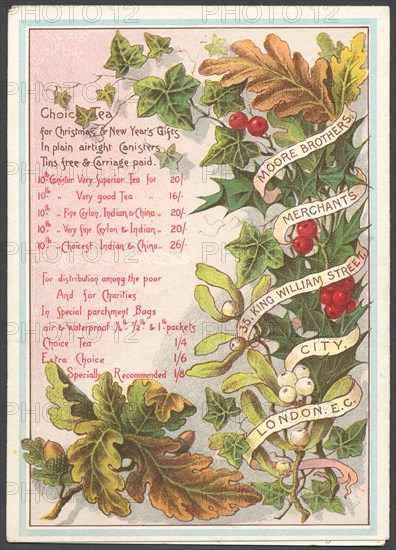 Choice Tea
for Christmas & New Year's Gifts
In plain airtight Canisters
Tins free & Carriage paid.
10lb Canister Very Superior Tea for 20/-
10lb „ Very good Tea „ 16/-
10lb „ Pine Ceylon, Indian & China „ 20/-
10lb „ Very fine Ceylon & Indian „ 20/-
10lb „ Choicest Indian & China „ 26/-
For distribution among the poor
And for Charities
In Special parchment Bags
air & waterproof 1/4lb 1/2lb & 1lb packets
Choice Tea 1/4
Extra Choice 1/6
Specially Recommended 1/8
MOORE BROTHERS,
MERCHANTS
35, KING WILLIAM STREET,
CITY,
LONDON. E.C.
PHOTO12